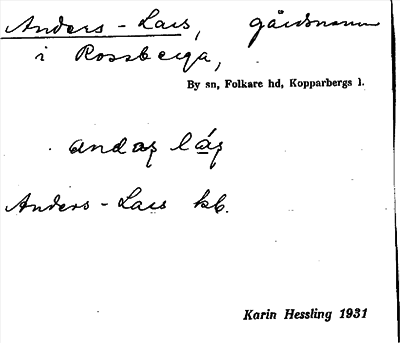 Anders-Lars, gårdsnamn
i Rossberga,
By sn, Folkare hd, Kopparbergs l.
andaʂ láʂ
Anders-Lars kb.
Karin Hessling 1931